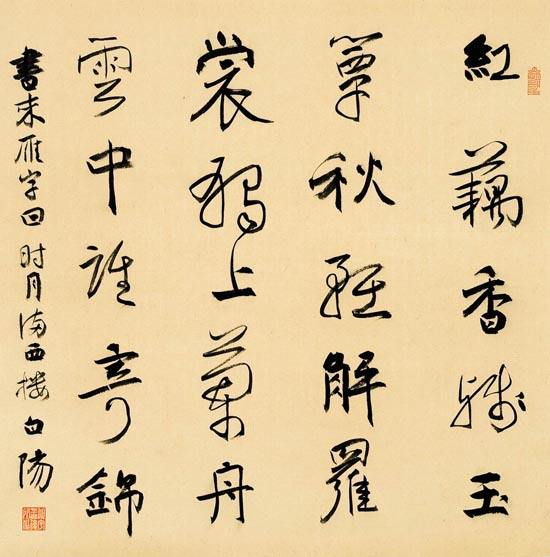 紅藕香殘玉
簟秋輕解羅
裳獨上蘭舟
雲中誰寄錦
書来雁字回时月滿西樓白陽